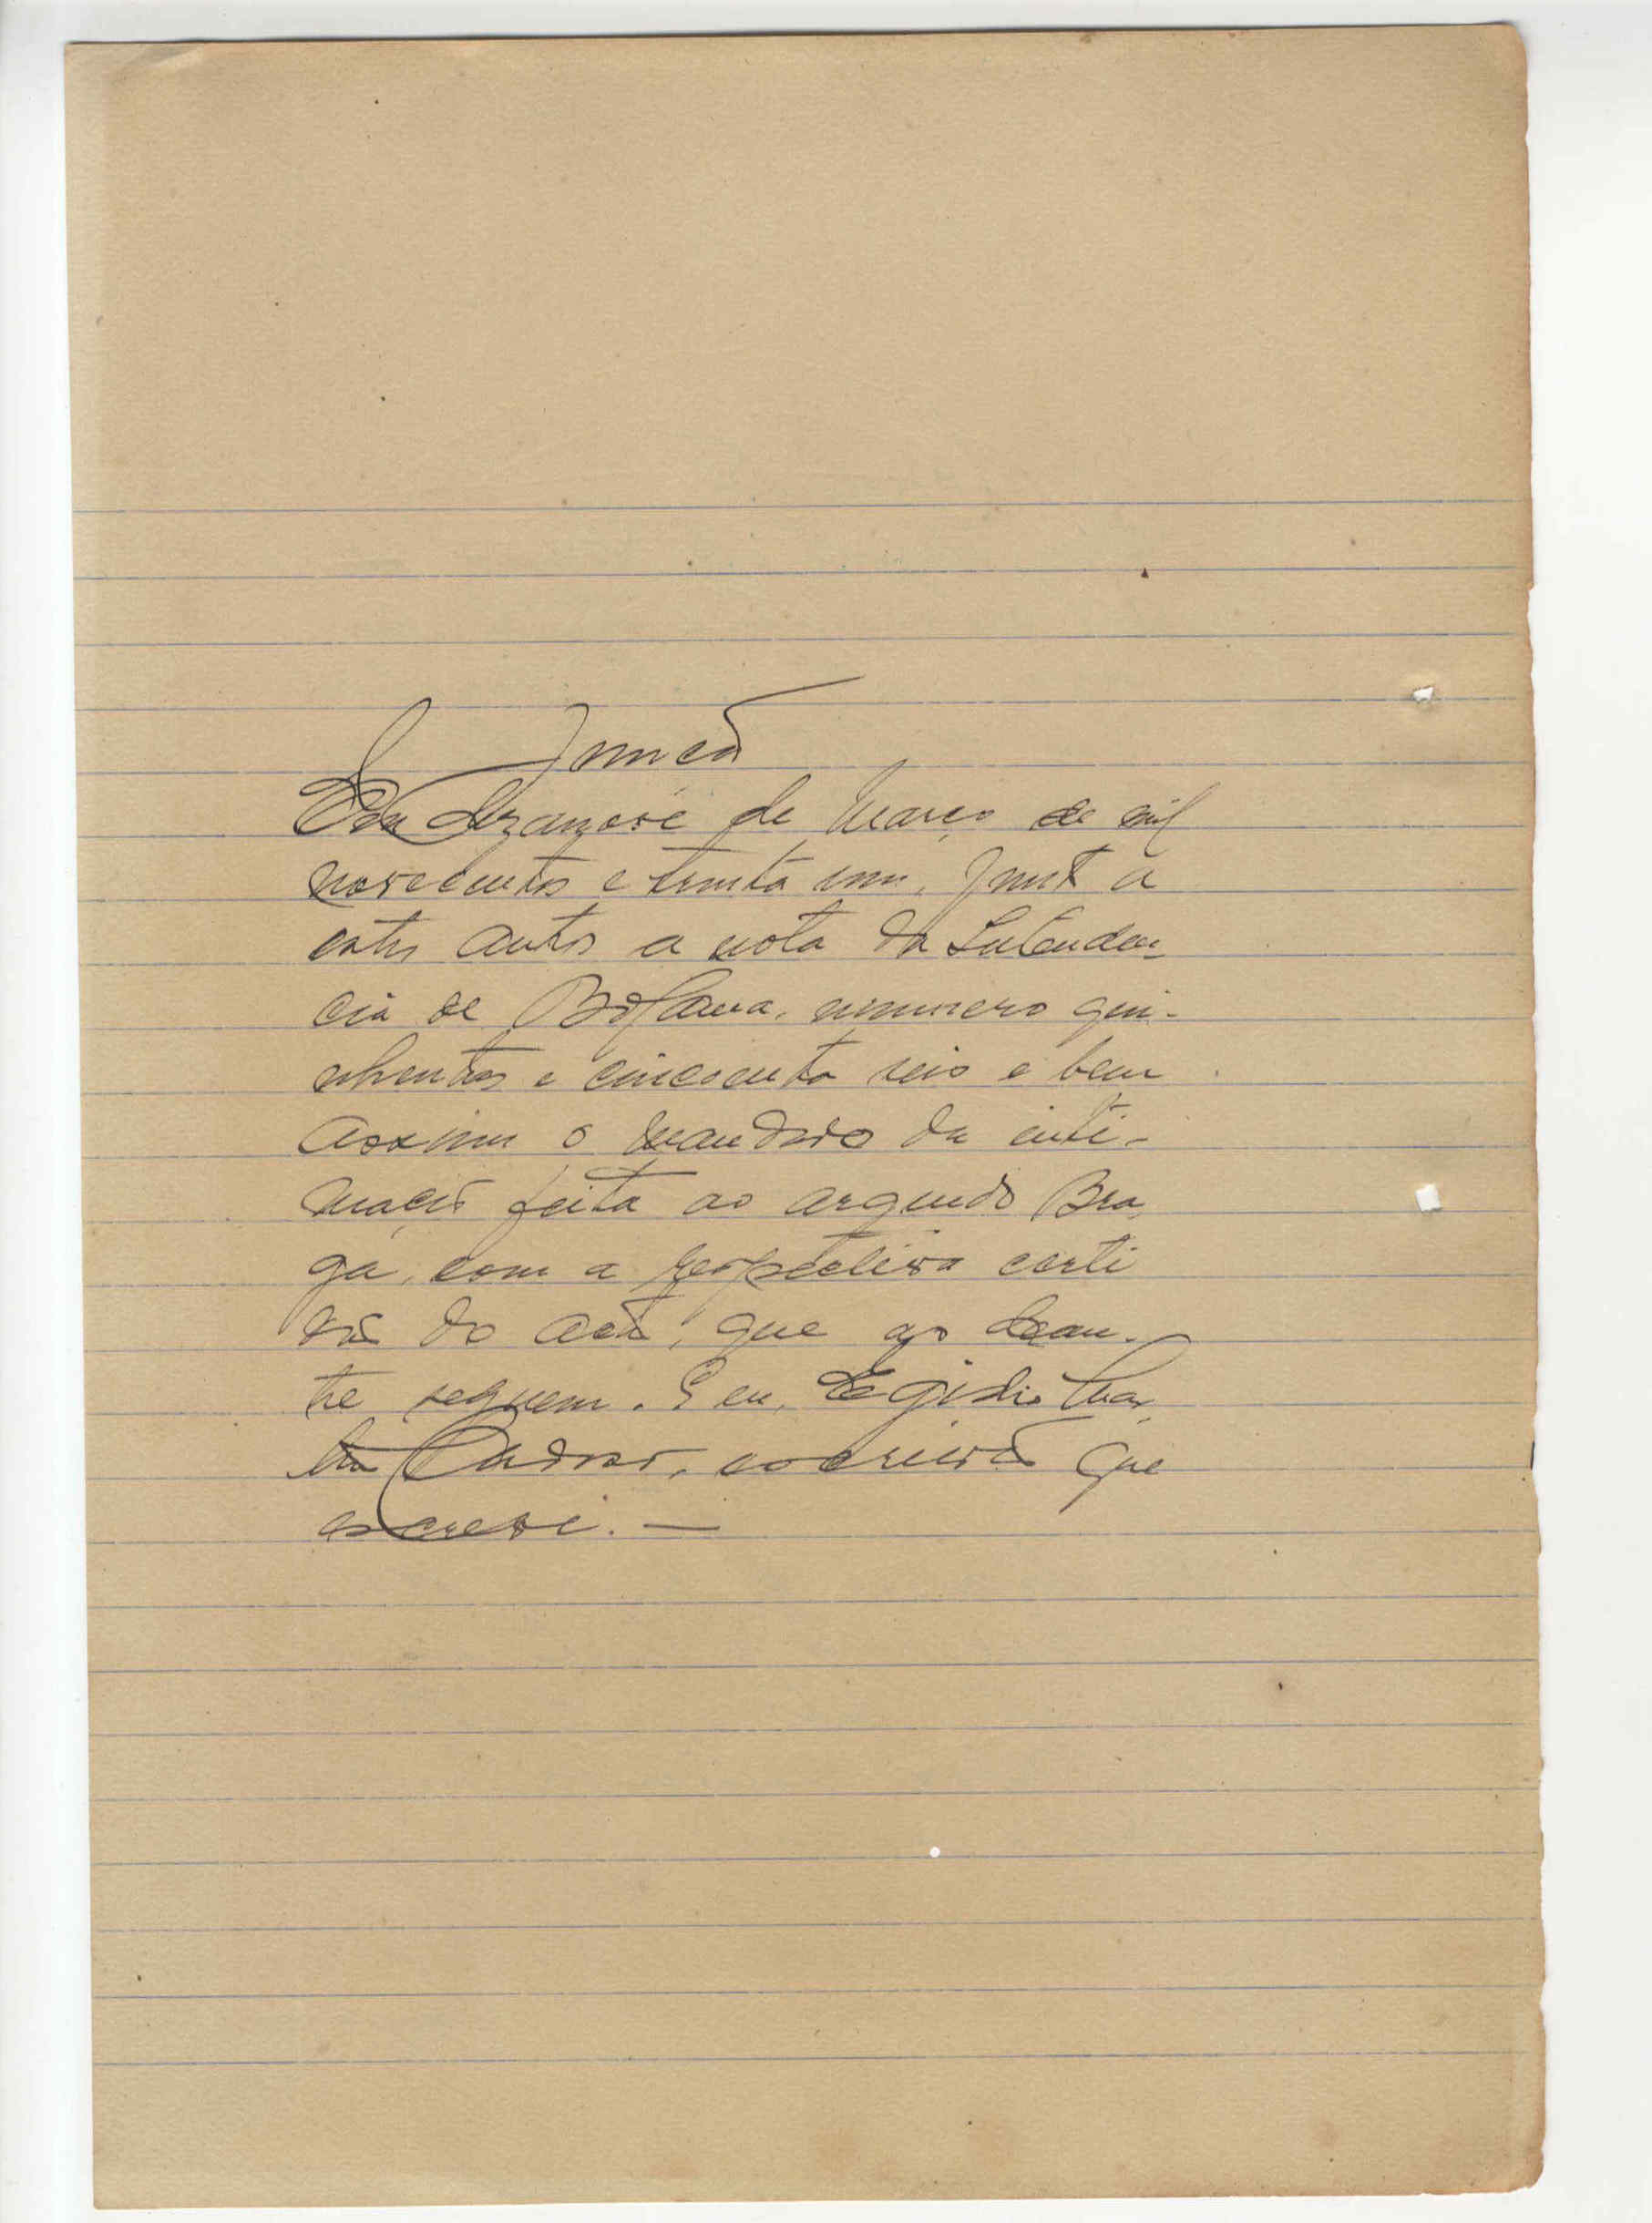 Juncão
Em dezanove de Março de mil
novecentos e trinta um, junto a
estes autos a nota da Intenden-
cia de Bolama, numero qui-
nhentos e cincoenta seis e bem
assim o mandado da inti-
mação feita ao arguido Bra
ga, com a respectiva certi
dão do acto, que ao dean-
te seguem. E eu, Egidio Mar
escrivão que
escrevi. —